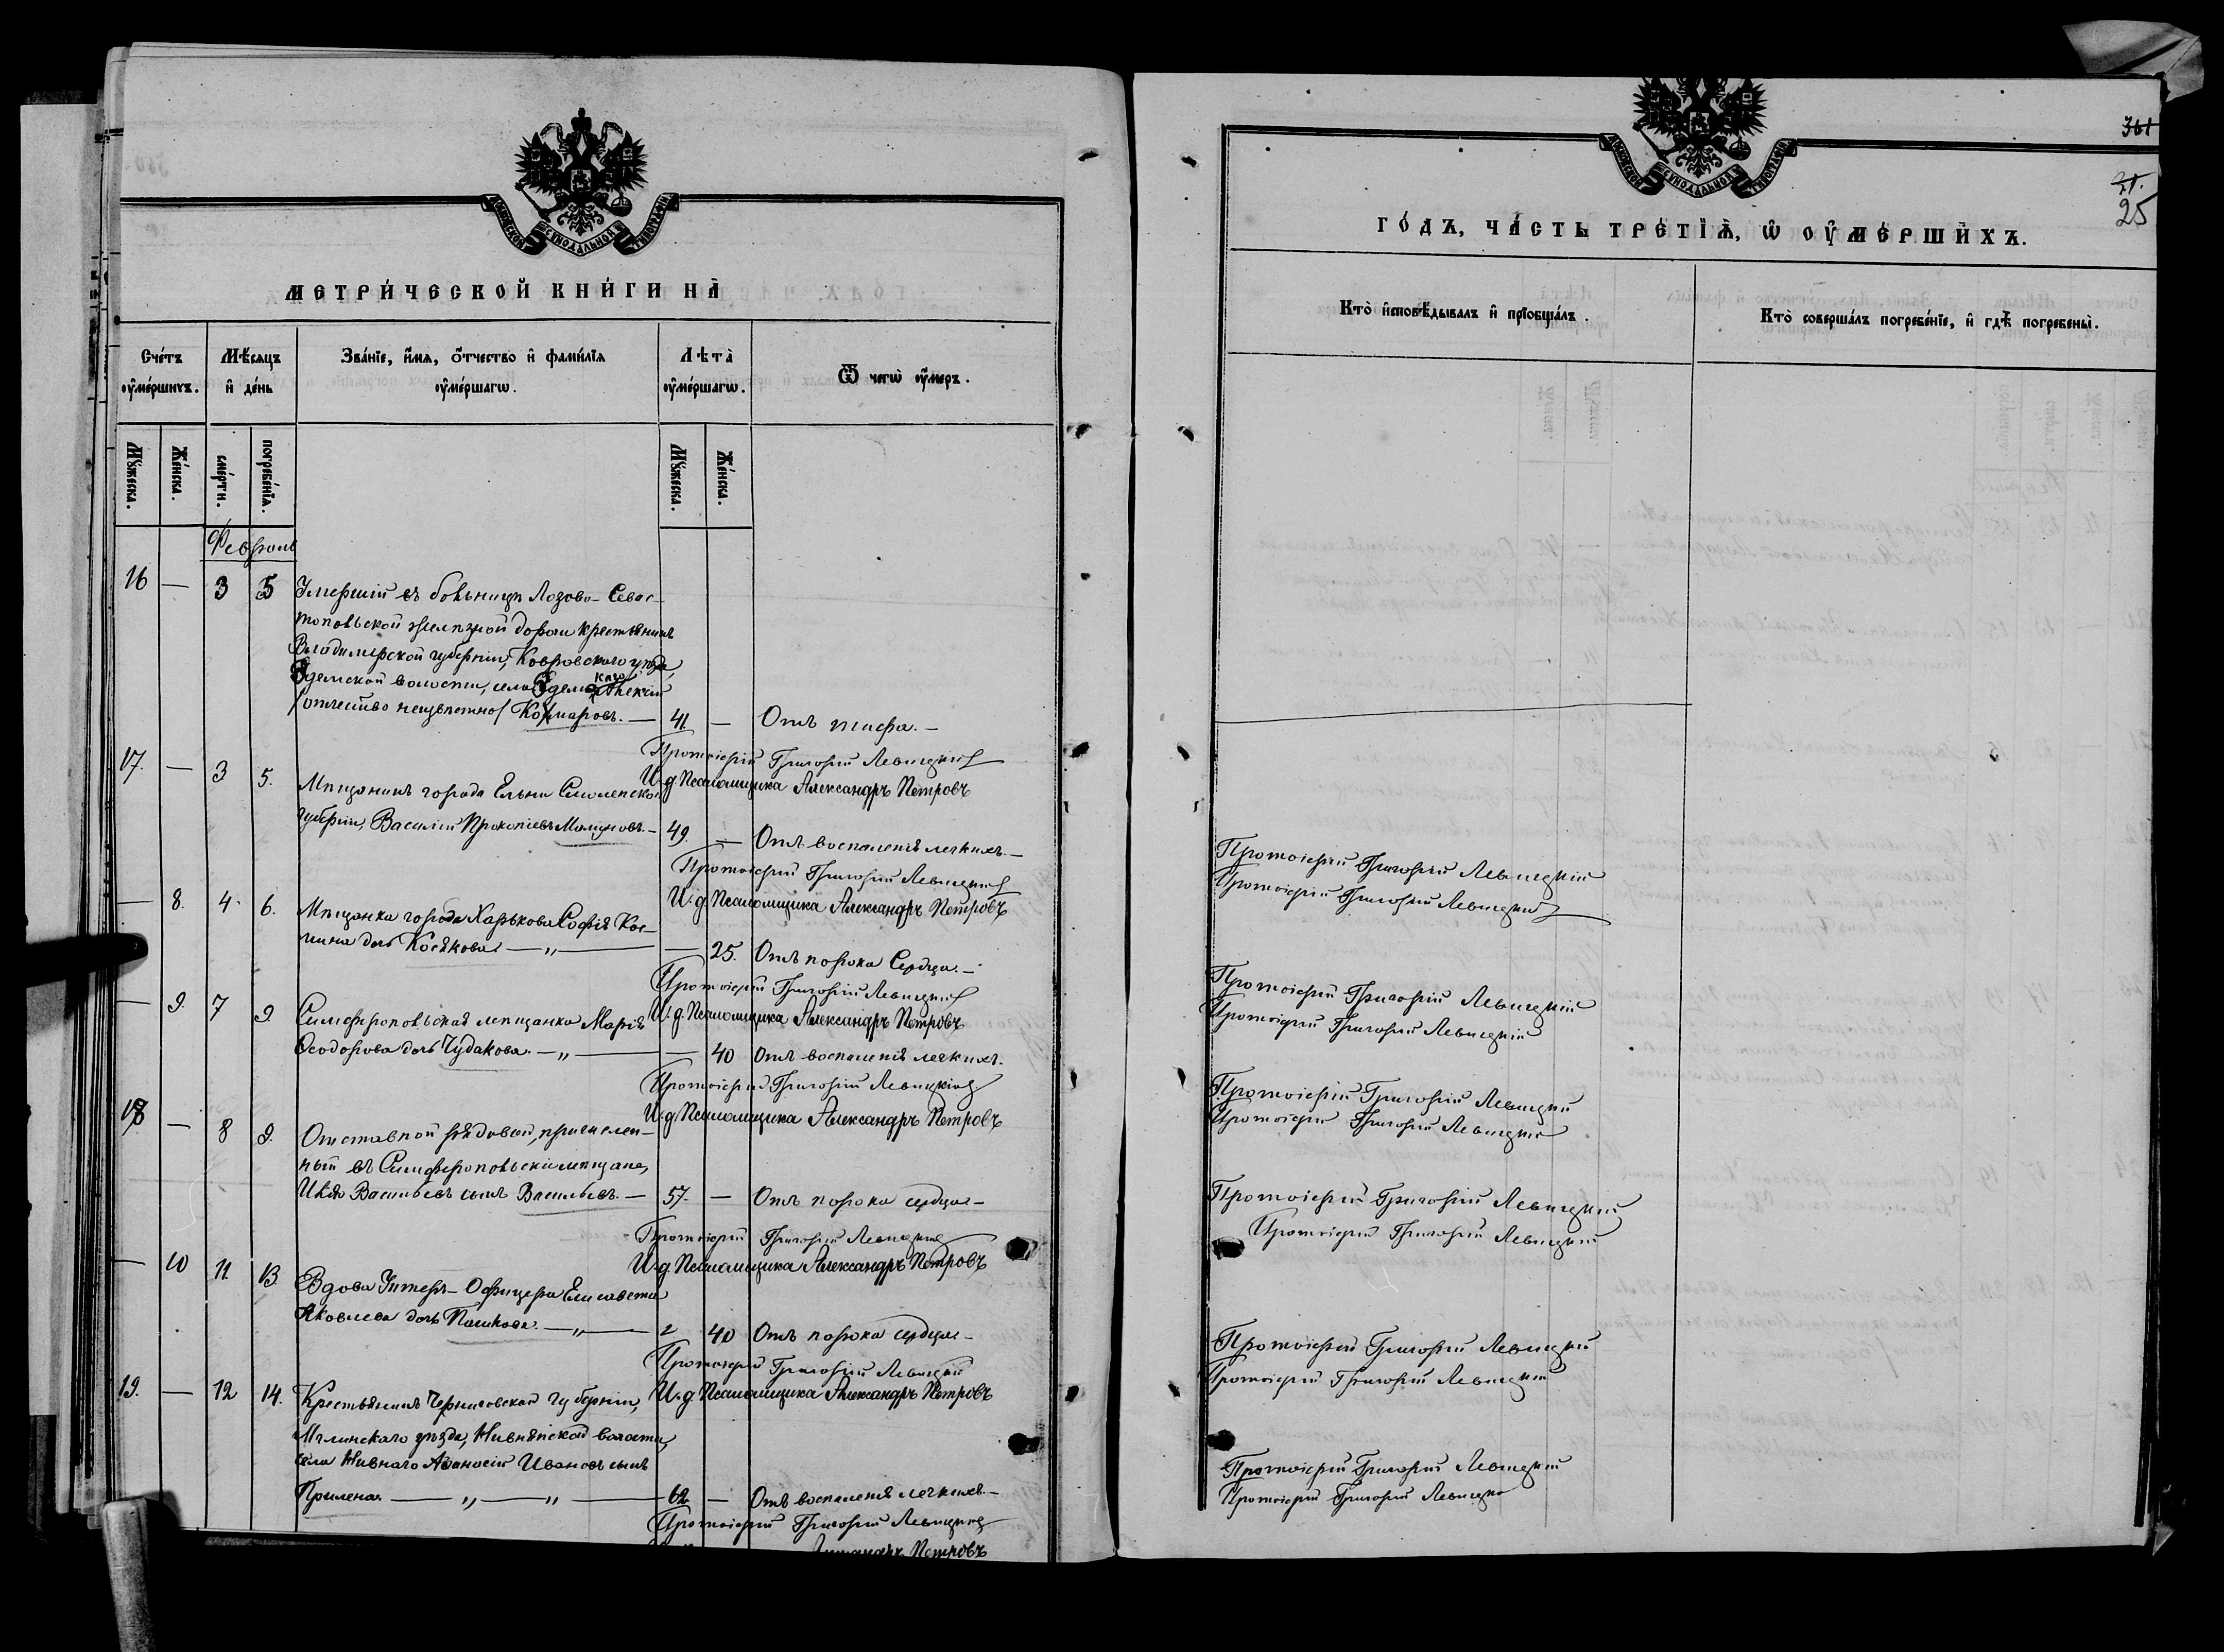 МОСКОВСКОЙ СУНОДАЛЬНОЙ ТИПОГРАФІИ
МЕТРИ́ЧЕСКОЙ КНИ́ГИ НА̀
Сче́тъ оу҆ме́ршихъ.
Мѣ́сяцъ и҆ де́нь
Зва́нїе, и҆́мя, ѻ҆́тчество и҆ фами́лїя оу҆ме́ршагѡ.
Лѣта̀ оу҆ме́ршагѡ.
Ѿ чегѡ̀ оу҆́меръ.
Мꙋ́жеска.
Же́нска.
сме́рти.
погребе́нїя.
Мꙋ́жеска.
Же́нска.
Февраль
16 — 3 5 Умершій въ больницѣ Лозово-Севас-
топольской желѣзной дороги крестьянинъ
Владимірской губерніи, Ковровскаго уѣзда,
Эдемской волости, села Эдемскаго Алексій
/отчество неизвѣстно/ Комаровъ. — 41 — Отъ тифа. —
Протоіерей Григорій Левицкій
И. д. Псаломщика Александръ Петровъ
17. — 3 5. Мѣщанинъ города Ельни Смоленской
губерніи, Василій Прокопіевъ Молчновъ. — 49. — Отъ воспаленія легкихъ. —
Протоіерей Григорій Левицкій
И. д. Псаломщика Александръ Петровъ
— 8. 4. 6. Мѣщанка города Харькова Софія Кос-
мина дочь Косякова — „ — — 25. Отъ порока Сердца. —
Протоіерей Григорій Левицкій
И. д. Псаломщика Александръ Петровъ
— 9. 7 9. Симферопольская мѣщанка Марія
Ѳеодорова дочь Чудакова. — „ — — 40 Отъ воспаленія легкихъ.
Протоіерей Григорій Левицкій
И. д. Псаломщика Александръ Петровъ
18 — 8 9. Отставной рядовой, причислен-
ный въ Симферопольскіе мѣщане,
Илія Васильевъ сынъ Васильевъ. — 57. — Отъ порока сердца —
Протоіерей Григорій Левицкій
И. д. Псаломщика Александръ Петровъ
— 10 11 13 Вдова Унтеръ-Офицера Елисавета
Яковлева дочь Пашкова. — „ — 40 Отъ порока сердца —
Протоіерей Григорій Левицкій
И. д. Псаломщика Александръ Петровъ
19. — 12 14. Крестьянинъ Черниговской губерніи,
Мглинскаго уѣзда, Нивнянской волости,
села Нивнаго Аѳанасій Ивановъ сынъ
— „ — „ — 62 — Отъ воспаленія легкихъ. —
Протоіерей Григорій Левицкій
Александръ Петровъ
361
21.
25
МОСКОВСКОЙ СУНОДАЛЬНОЙ ТИПОГРАФІИ
ГО́ДЪ, ЧА́СТЬ ТРЕ́ТЇѦ, Ѡ҆ ОУ҆МЕ́РШИХЪ.
Кто̀ и҆сповѣ́дывалъ и҆ прїобща́лъ.
Кто̀ соверша́лъ погребе́нїе, и҆ гдѣ̀ погребены̀.
Протоіерей Григорій Левицкій
Протоіерей Григорій Левицкій
Протоіерей Григорій Левицкій
Протоіерей Григорій Левицкій
Протоіерей Григорій Левицкій
Протоіерей Григорій Левицкій
Протоіерей Григорій Левицкій
Протоіерей Григорій Левицкій
Протоіерей Григорій Левицкій
Протоіерей Григорій Левицкій
Протоіерей Григорій Левицкій
Протоіерей Григорій Левицкій